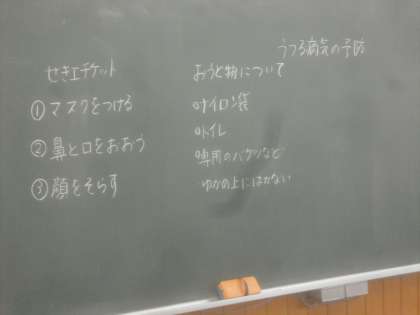 うつる病気の予防
せきエチケット
①マスクをつける
②鼻と口をおおう
③顔をそらす
おうと物について
○ナイロン袋
○トイレ
○専用のバケツなど
ゆかの上にはかない